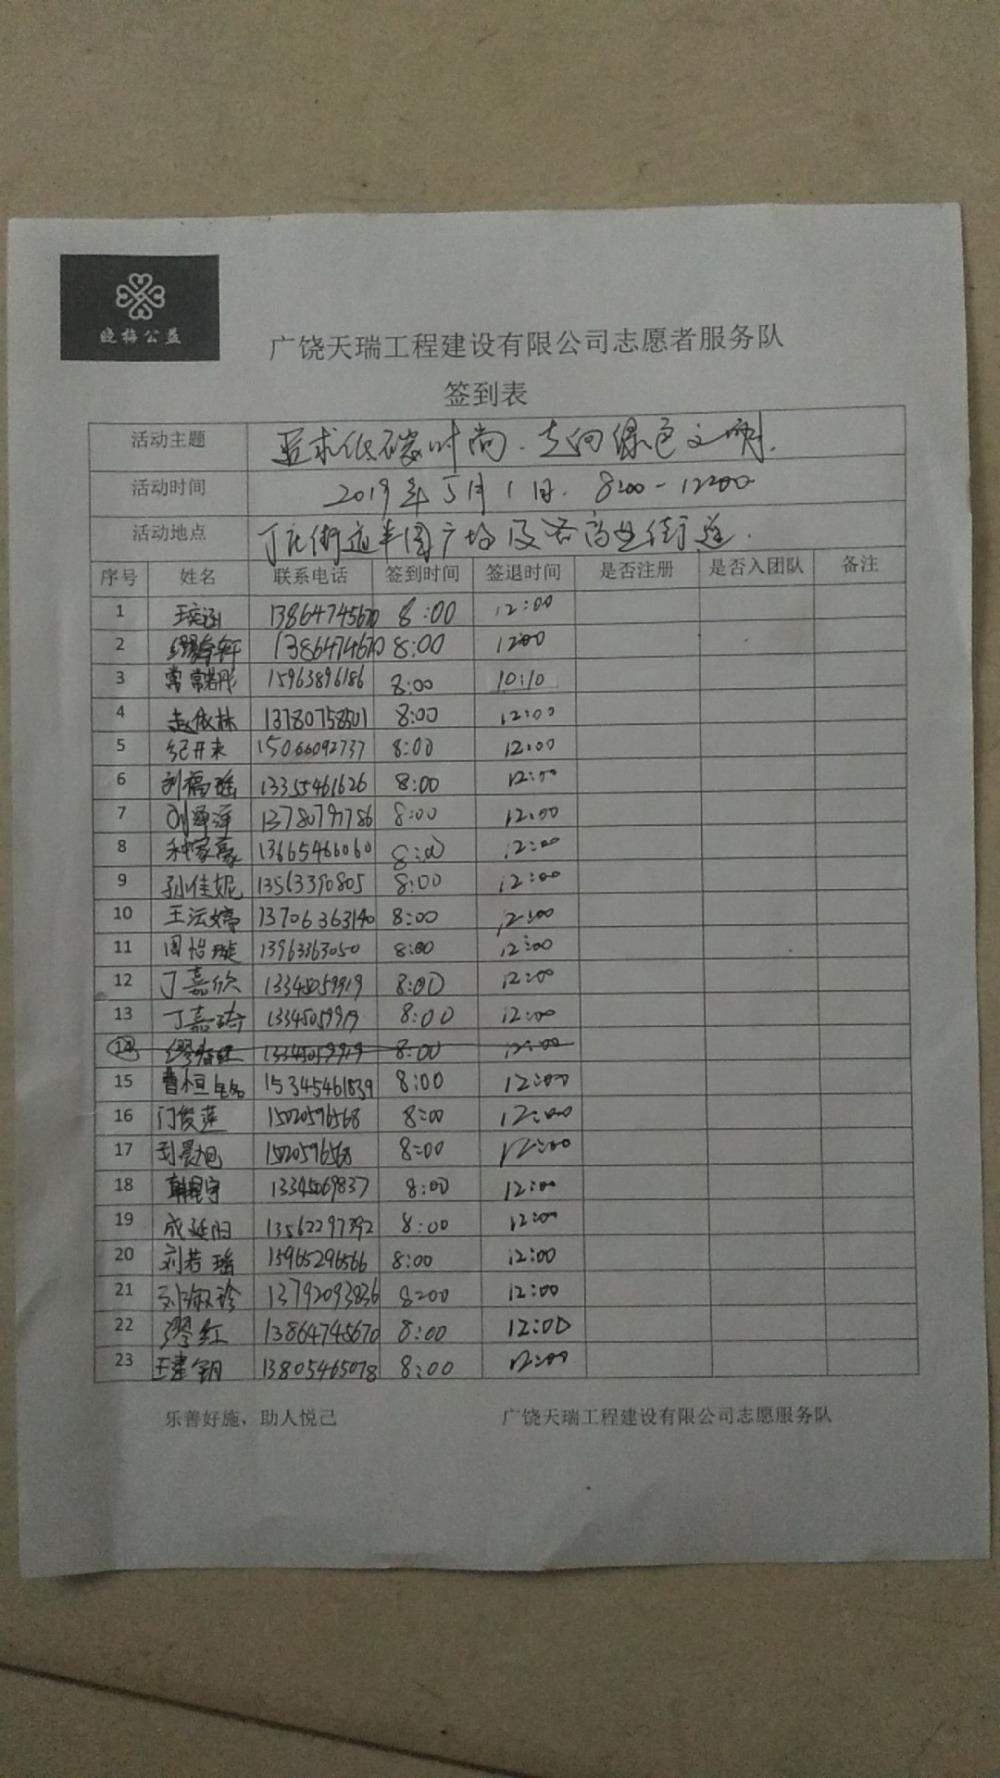 晓梅公益
广饶天瑞工程建设有限公司志愿者服务队
签到表
活动主题 追求低碳时尚.走向绿色文明.
活动时间 2019年5月1日. 8:00-12:00
活动地点 丁庄街道半园广场及各商业街道.
序号 姓名 联系电话 签到时间 签退时间 是否注册 是否入团队 备注
1 13864745670 8:00 12:00
2 1386474670 8:00 1200
3 常常若彤 15963896186 8:00 10:10
4 赵依林 13780758501 8:00 12:00
5 纪开来 15066092737 8:00 12:00
6 刘福瑶 13355461626 8:00 12:00
7 刘泽萍 13780797786 8:00 12:00
8 种家豪 13665466060 8:00 12:00
9 孙佳妮 13563390805 8:00 12:00
10 王沄婷 13706363140 8:00 12:00
11 周怡璇 13963363050 8:00 12:00
12 丁嘉欣 13345059919 8:00 12:00
13 丁嘉琦 13345059919 8:00 12:00
14 13345059919 8:00 12:00
15 曹恒 15345461839 8:00 12:00
16 门俊莲 1502596568 8:00 12:00
17 刘晨旭 1502596568 8:00 12:00
18 13345069837 8:00 12:00
19 成延阳 13562297392 8:00 12:00
20 刘若瑶 15965296566 8:00 12:00
21 刘淑珍 13792093836 8:00 12:00
22 缪红 13864745670 8:00 12:00
23 王建钥 13805465078 8:00 12:00
乐善好施，助人悦己 广饶天瑞工程建设有限公司志愿服务队